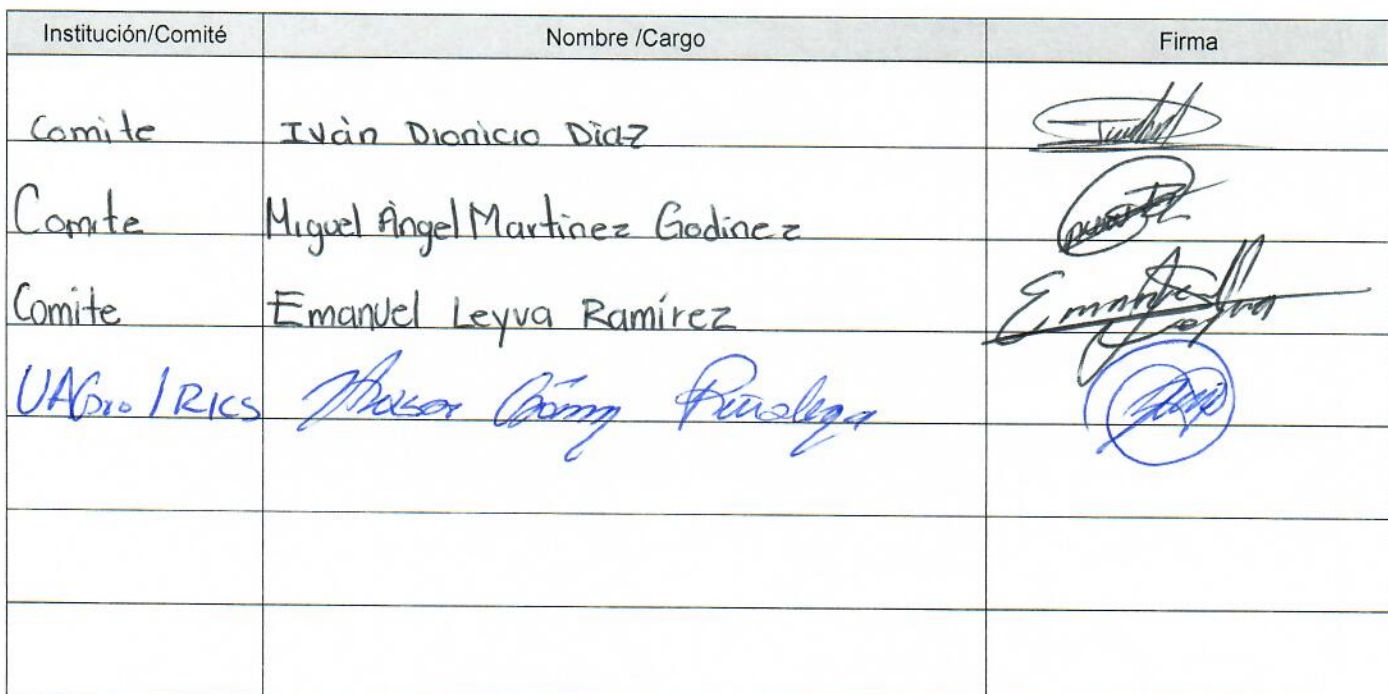 Institución/Comité Nombre /Cargo Firma
Comite Iván Dionicio Díaz
Comite Miguel Ángel Martinez Godinez
Comite Emanuel Leyva Ramírez Emanuel Leyva
UAGro / RICS